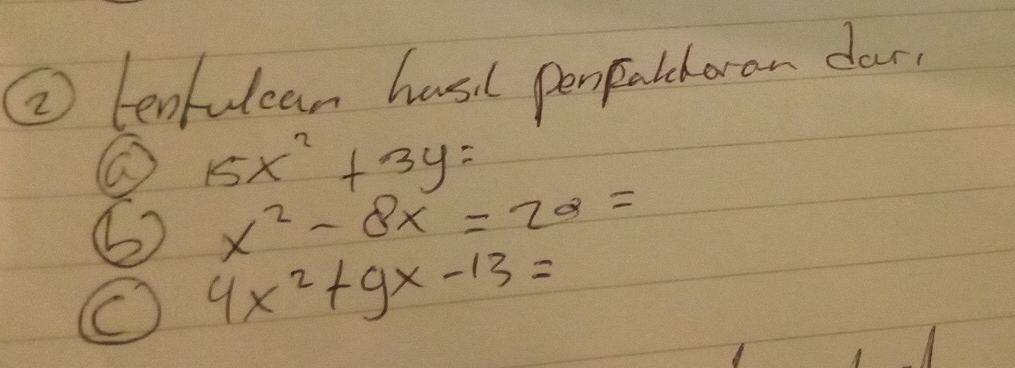 ② tentukan hasil penfaktoran dari
ⓐ 15x² + 3y =
ⓑ x² - 8x = 20 =
ⓒ 4x² + 9x - 13 =